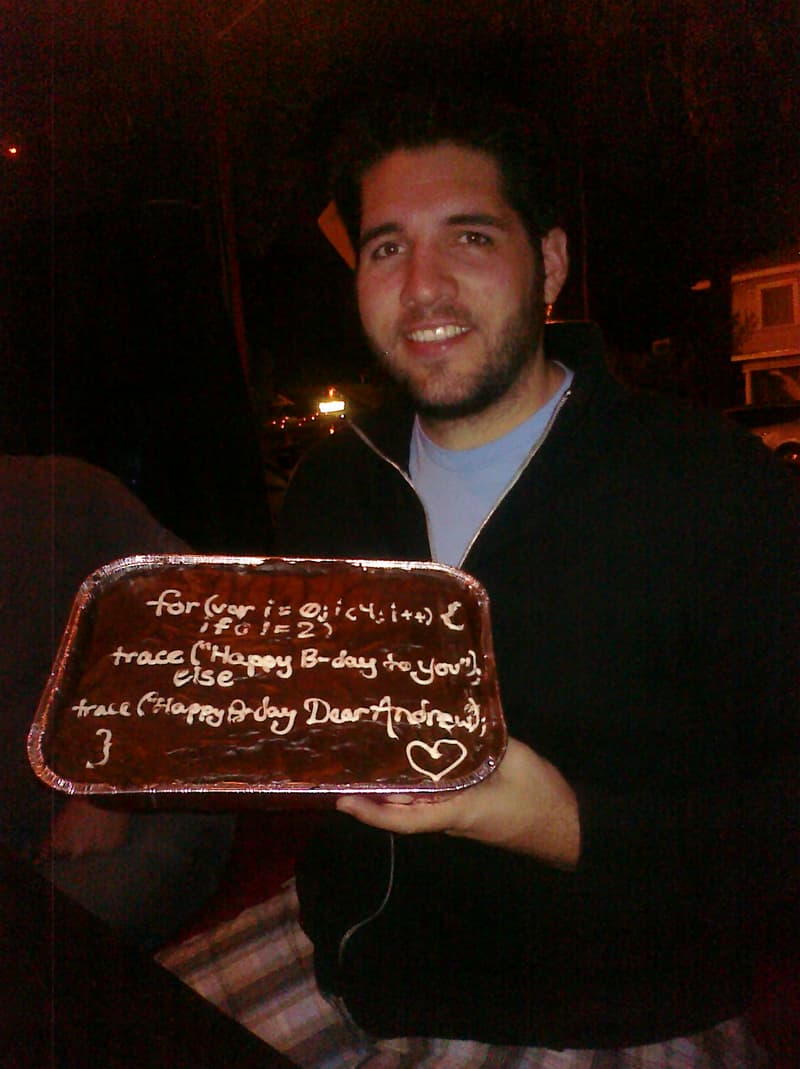 for (var i = 0; i < 4; i++) {
if (i != 2)
trace ("Happy B-day to you");
else
trace ("Happy B-day Dear Andrew");
}